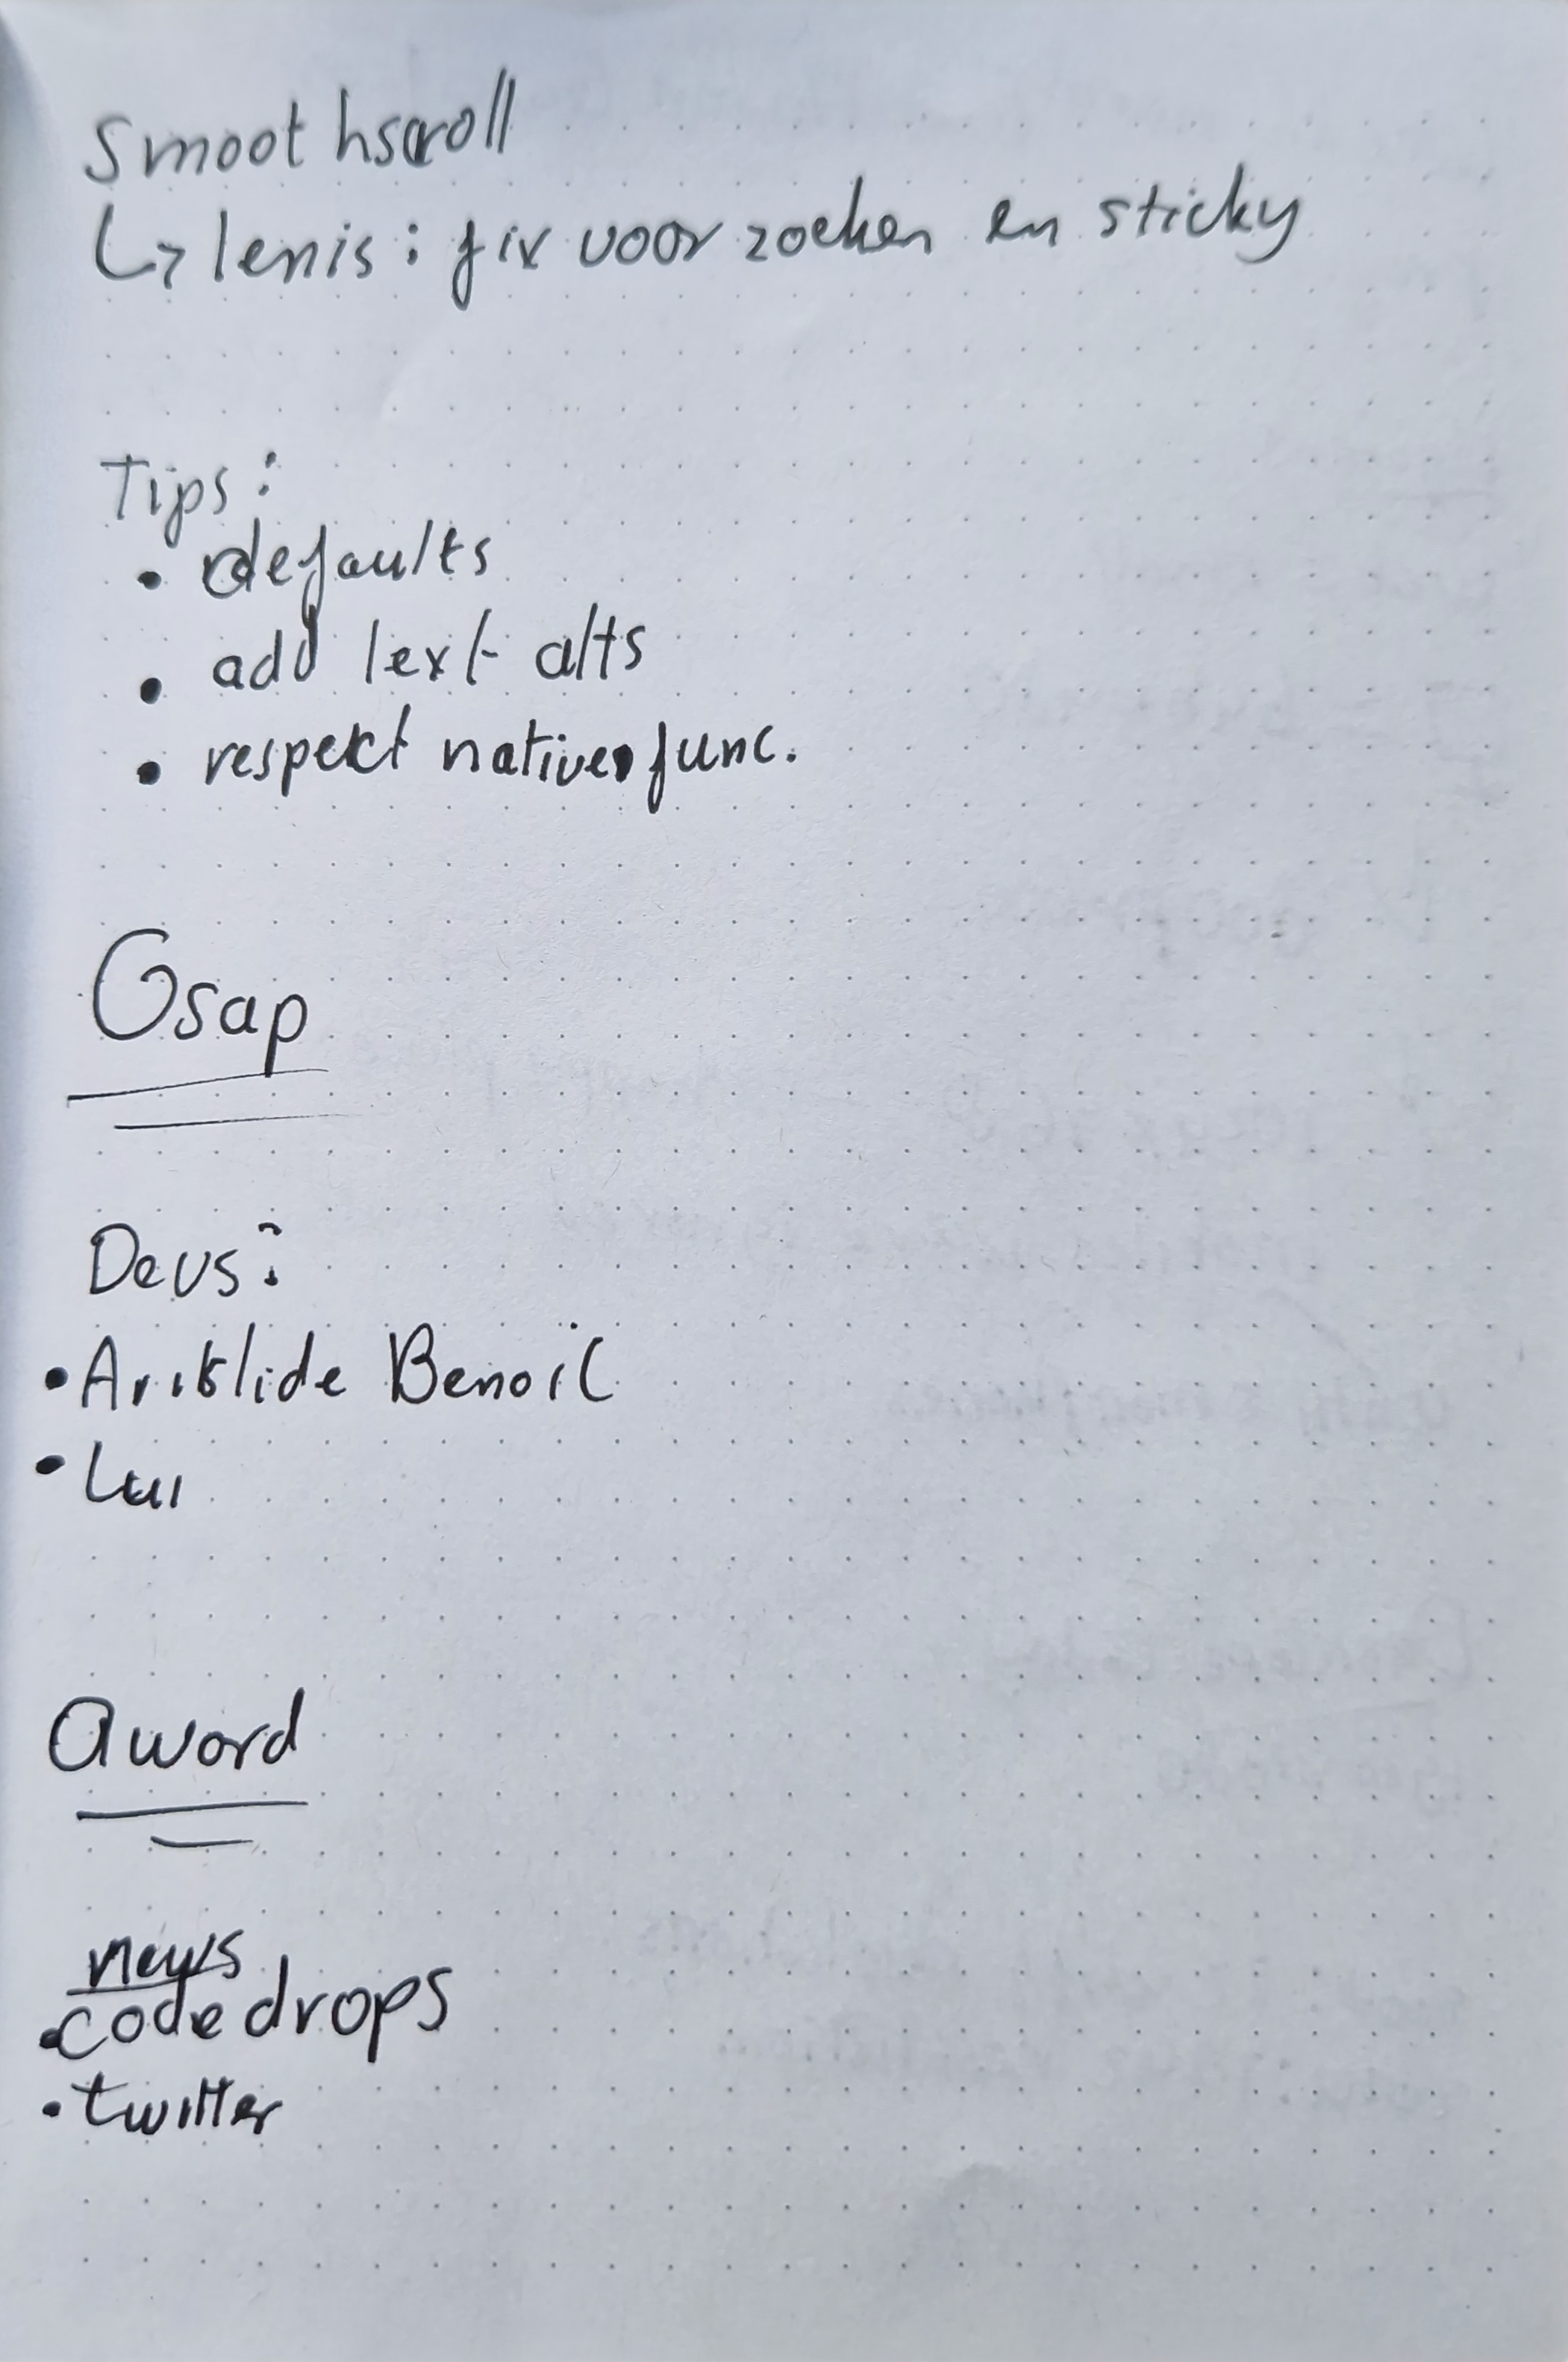 Smoothscroll
↳ lenis: fix voor zoeken en sticky
Tips:
• defaults
• add text alts
• respekt native func.
Gsap
Devs:
• Aristide Benoit
• Lui
Award
news
• codedrops
• twitter